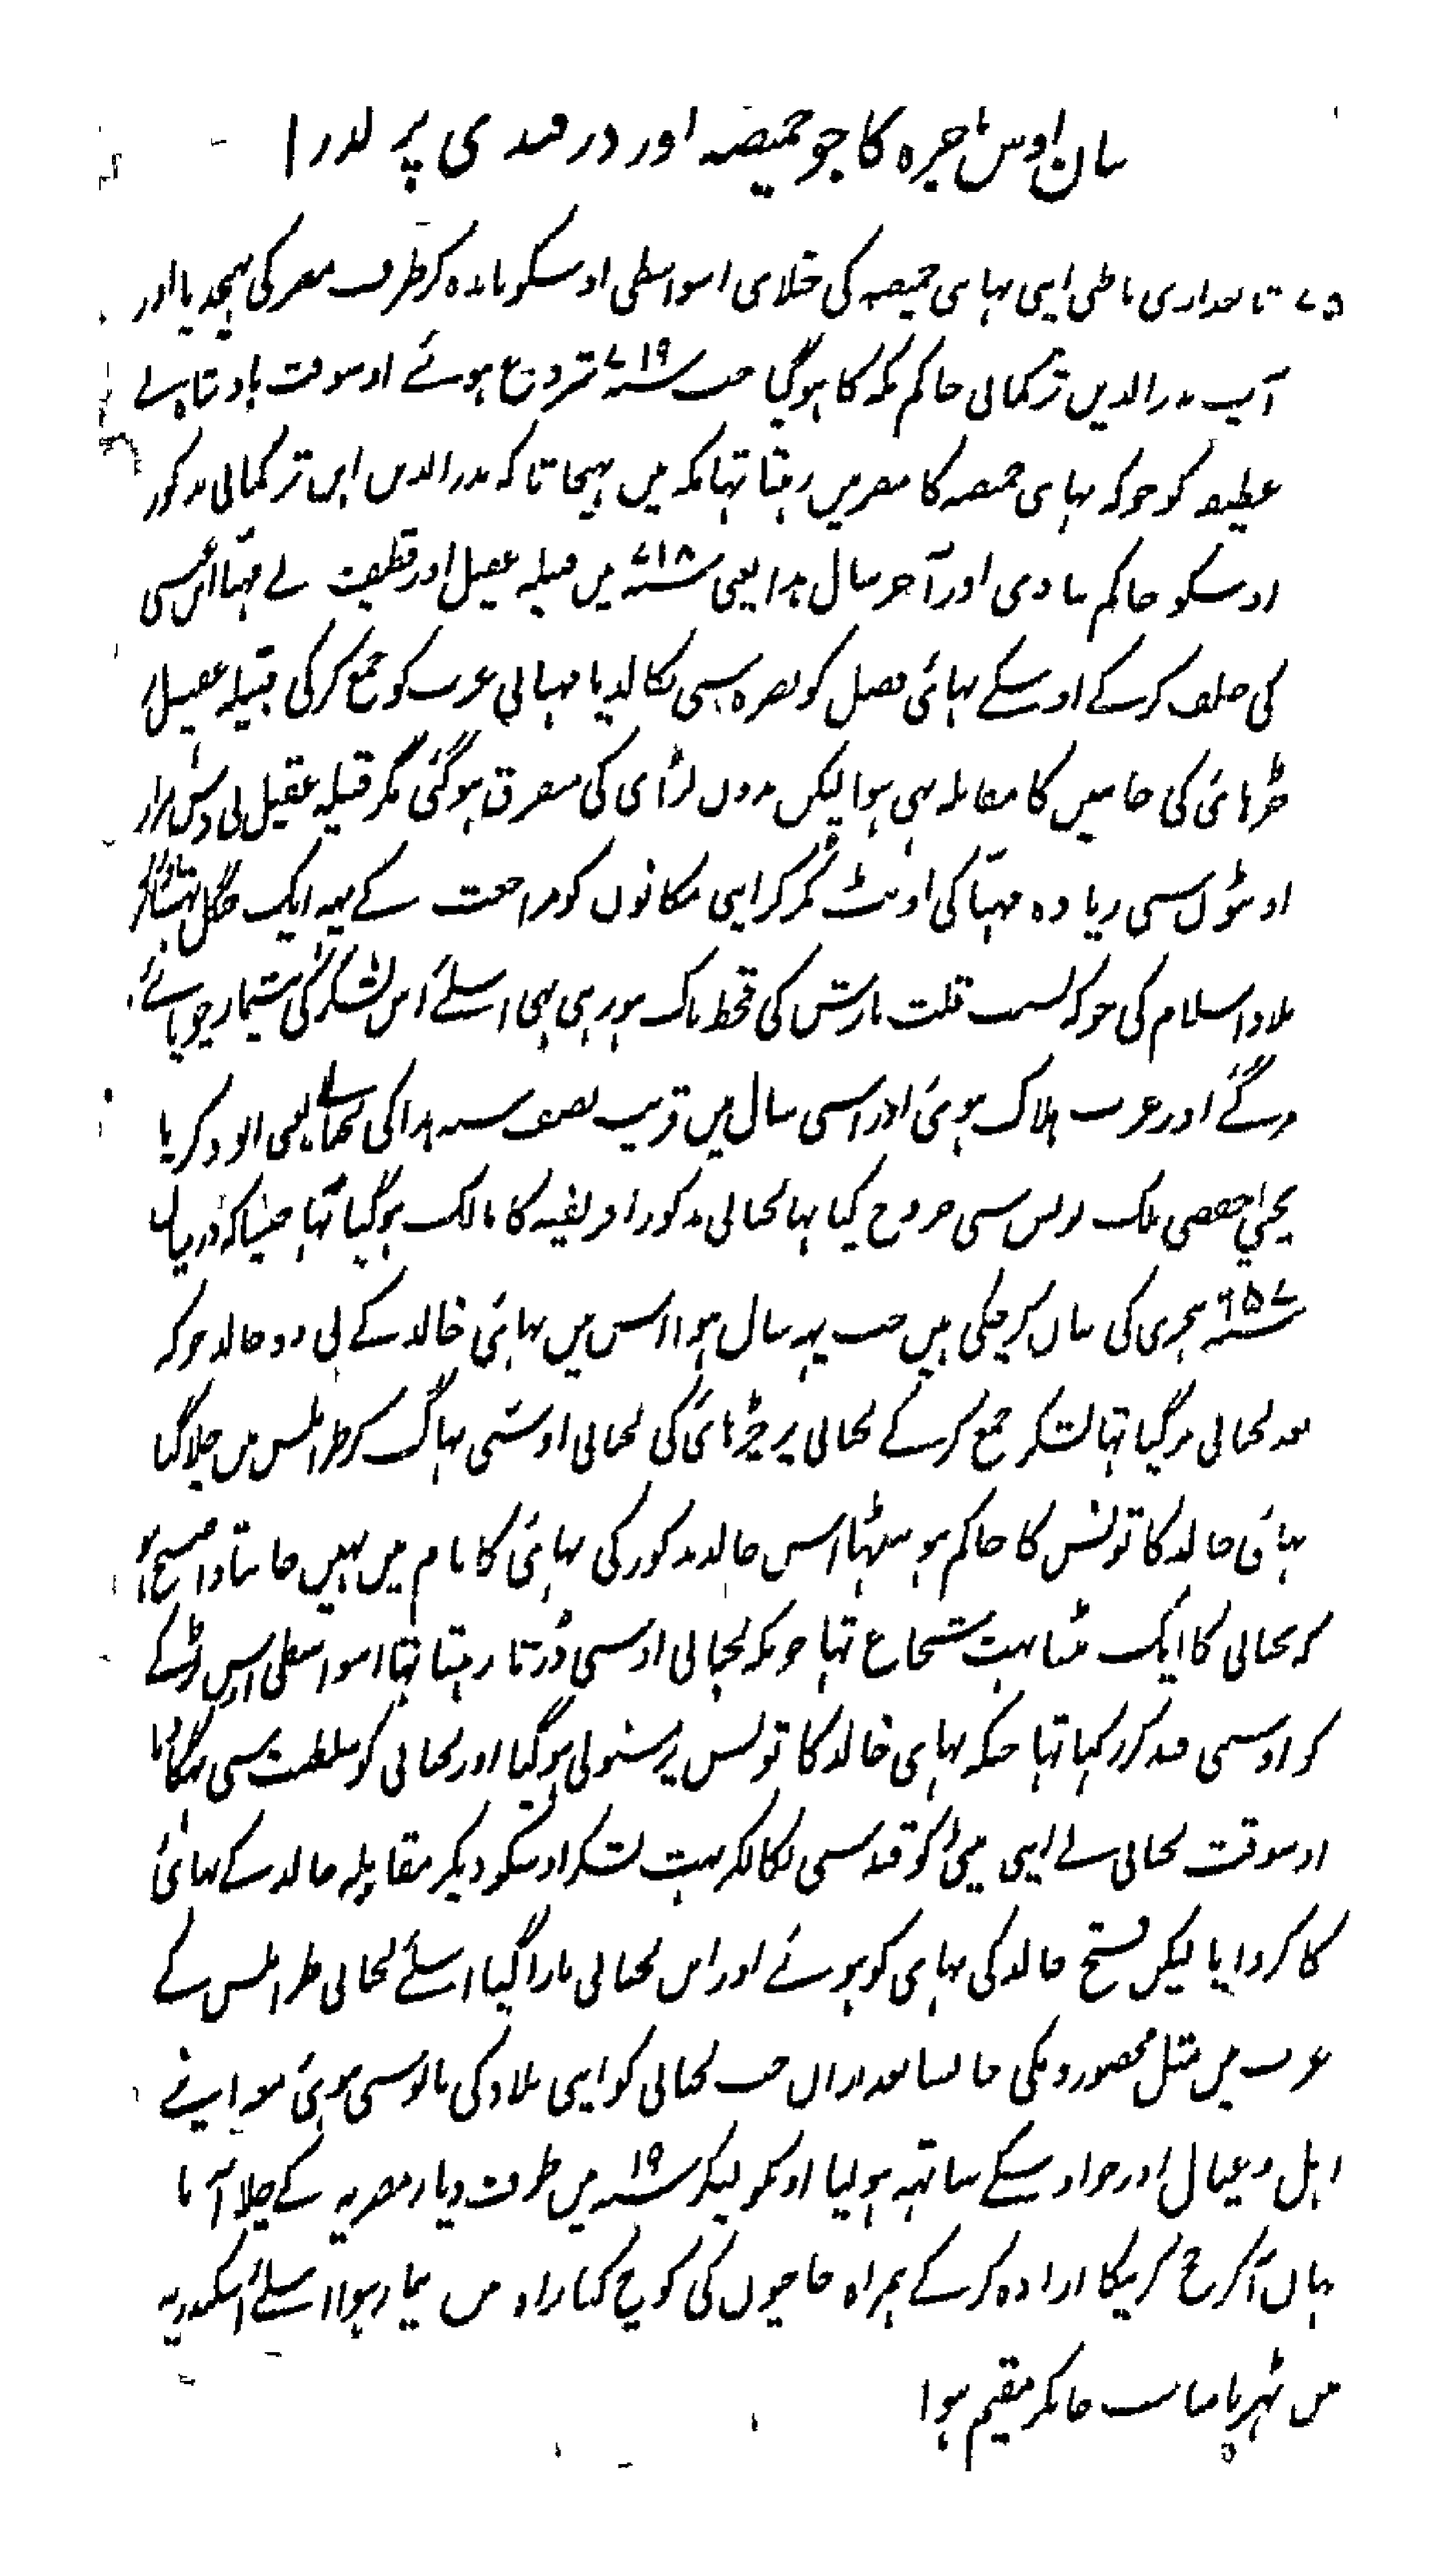 بیان اوس ماجرہ کا جو حمیضہ اور درفندی پر گذرا
تابعداری باطنی اپنی بہای حمیضہ کی جتلای اسواسطی اوسکو باندہ کر طرف مصر کی بہیجدیا اور
آپ بدرالدین ترکمانی حاکم مکہ کا ہوگیا جب سنہ ۷۱۹ شروع ہوئے اوسوقت بادشاہ نے
عطیفہ کو جو کہ بہای حمیضہ کا مصر میں رہتا تہا مکہ میں بہیجا تا کہ بدرالدین ابن ترکمانی مذکور
اوسکو حاکم بنا دی اور آخر سال ہذا یعنی سنہ ۷۱۸ میں قبیلہ عقیل اور قطیف نے مہنا ابن عیسی
کی خلاف کرکے اوسکے بہائی فضل کو بصرہ سی نکالدیا مہنا نی عرب کو جمع کرکی قبیلہ عقیل پر
چڑہائی کی جانبین کا مقابلہ ہی ہوا لیکن بدون لڑای کی متفرق ہوگئی مگر قبیلہ عقیل نی دس ہزار
اونٹوں سی زیادہ مہنا کی اونٹ پکڑ کر اپنی مکانوں کو مراجعت کے یہہ ایک جنگل تہا
بلاد اسلام کی جو کہ بسبب قلت بارش کی قحط ناک ہو رہی تہی اسلئے اس لشکر کی بیشمار چوپائے
مرگئے اور عرب ہلاک ہوئی اور اسی سال میں قریب نصف سنہ ہذا کی لحیانی یعنی ابو زکریا
یحیی حفصی ملک تونس سی خروج کیا تہا لحیانی مذکور افریقیہ کا مالک ہوگیا تہا جیسا کہ درمیان
سنہ ۶۵۷ ہجری کی بیان کرچکی ہیں جب یہہ سال ہوا اس میں بہائی خالد کے نی وہ خالد جو کہ
بعد لحیانی مرگیا تہا لشکر جمع کرکے لحیانی پر چڑہائی کی لحیانی اوسنی بہاگ کر طرابلس میں چلا گیا
بہائی خالد کا تونس کا حاکم ہو بیٹہا اس خالد مذکور کی بہائی کا نام میں نہیں جانتا واضح ہو
کہ لحیانی کا ایک بیٹا بہت شجاع تہا چونکہ لحیانی اوسسی ڈرتا رہتا تہا اسواسطی اس لڑکے
کو اوسسی قید کر رکہا تہا جبکہ بہای خالد کا تونس پر مستولی ہوگیا اور لحیانی کو سلطنت سی بہگایا
اوسوقت لحیانی نے اپنی بیٹی کو قید سی نکالکر بہت لشکر اوسکو دیکر مقابلہ خالد کے بہائی
کا کروایا لیکن فتح خالد کی بہای کو ہوئے اور ابن لحیانی مارا گیا اسلئے لحیانی طرابلس کے
عرب میں مثل محصور ونکی جا بسا بعد ازاں جب لحیانی کو اپنی بلاد کی مایوسی ہوئی معہ اپنے
اہل و عیال اور جو اوسکے ساتہہ ہولیا اونکو لیکر سنہ ۱۹ میں طرف دیار مصریہ کے چلا آیا
یہاں آکر حج کرنیکا ارادہ کرکے ہمراہ حاجیوں کی کوچ کیا راہ میں بیمار ہوا اسلئے اسکندریہ
میں ٹہر جاکر مقیم ہوا